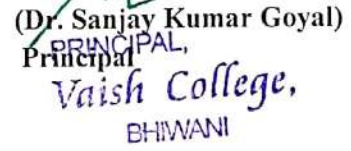 (Dr. Sanjay Kumar Goyal)
PRINCIPAL,
Principal
Vaish College,
BHIWANI